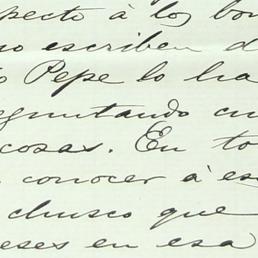 specto á los bon
no escriben d
o Pepe lo ha
eguntando cu
cosas. En to
conocer á es
chusco que
eses en esa